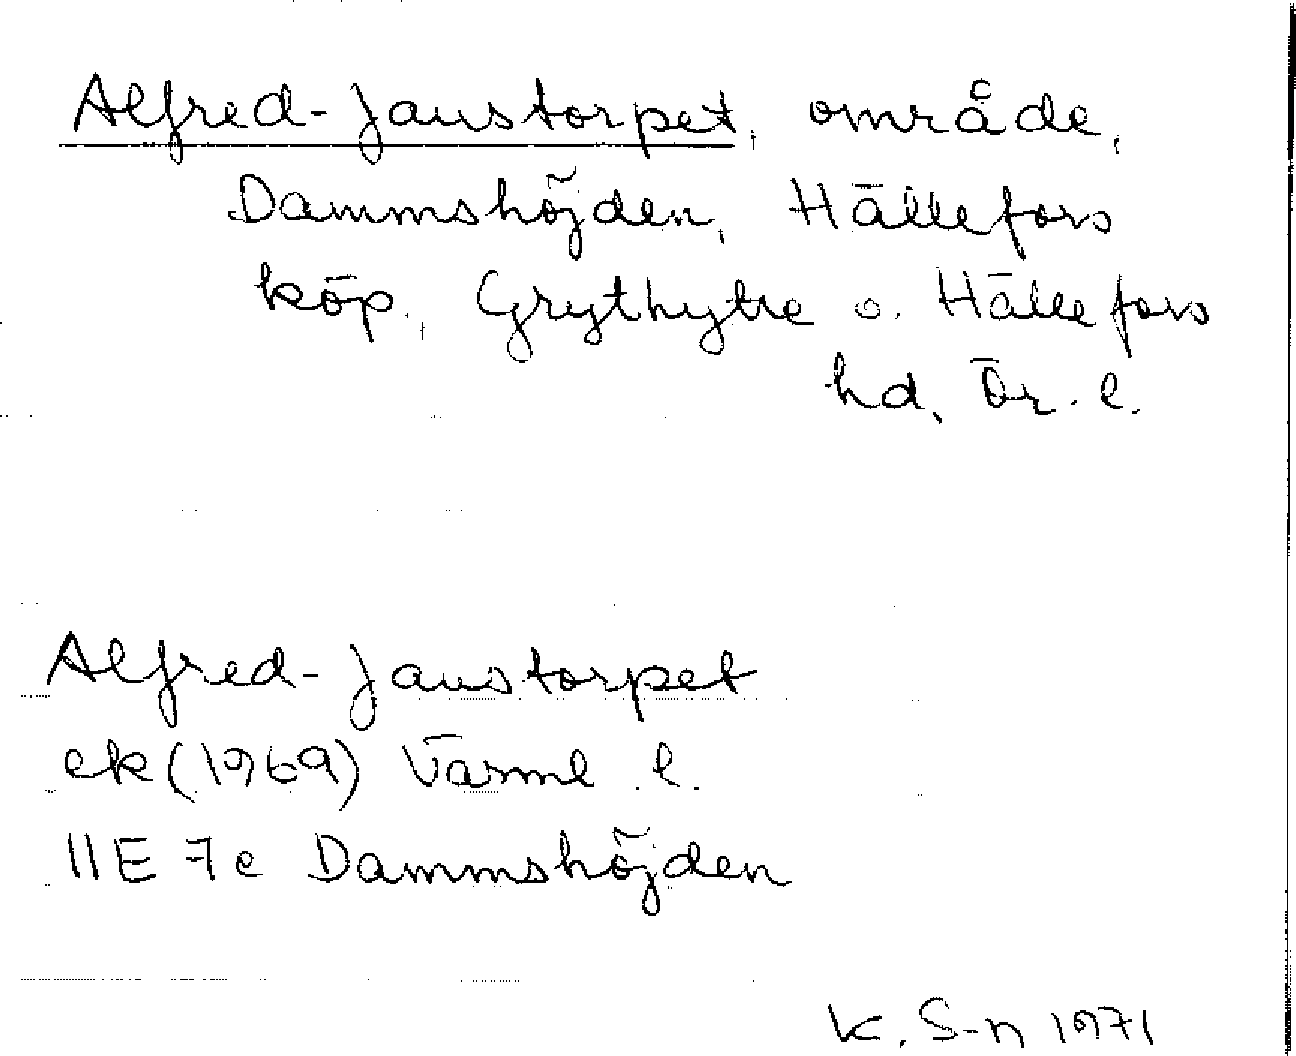 Alfred-Janstorpet, område,
Dammshöjden, Hällefors
köp., Grythytte o. Hällefors
hd, Ör. l.
Alfred-Janstorpet
ek (1969) Värml. l.
11E 7e Dammshöjden
K. S-n 1971